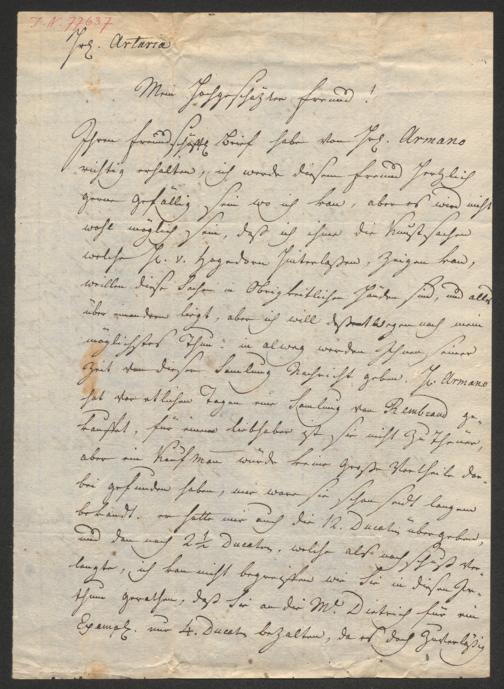 I. N. 77637
Hrn. Artaria
Mein Hochgeschäzter freund!
Ihren freundschaftl. Brief habe von Hrn. Armano
richtig erhalten, ich werde diesem freund Herzlich
gerne gefällig seyn wo ich kan, aber es wird nicht
wohl möglich seyn, daß ich ihme die Kunstsachen
welche H. v. Hagedorn hinterlaßen, zeigen kan,
weillen diese Sachen in Obrigkeitlichen Händen sind, und alles
über einander ligt, aber ich will deßentwegen noch mein
möglichstes thun: in alweg werden Ihnen seiner
Zeit von dieser Samlung Nachricht geben. Hr. Armano
hat vor etlichen Tagen eine Samlung von Rembrand ge-
kauffet, für einen liebhaber ist sie nicht zu theuer,
aber ein Kaufman würde keine große Vortheile dar-
bei gefunden haben, mir ware sie schon seit langem
bekandt. er hatte mir auch die 12. Ducaten übergeben,
und dan noch 2 1/2 Ducaten, welche also noch ver-
langte, ich kan nicht begreiffen wie Sie in diesen Ir-
thum gerathen, daß Sie an die Mr. Dietrich für ein
Exempl. nur 4. Ducaten bezalten, da es doch zuverläßig